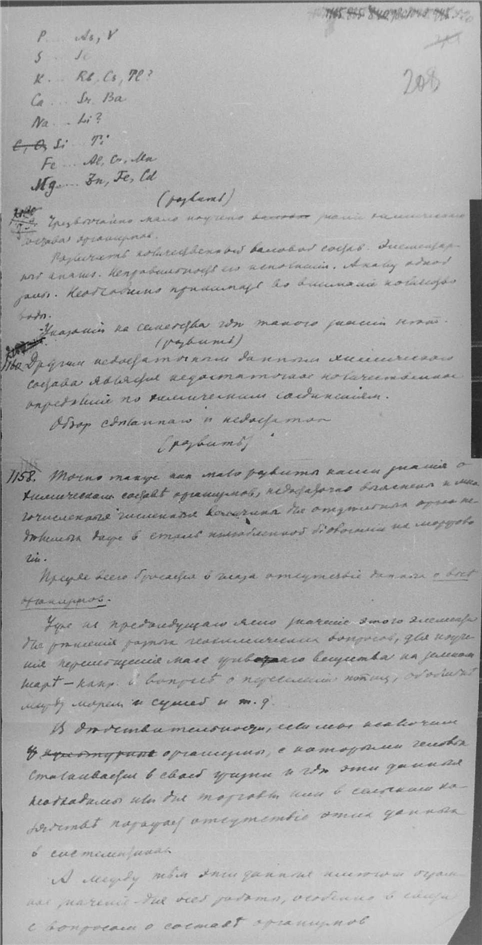 208
P ... As, V
S ... Se
K ... Rb, Cs, Tl?
Ca ... Sr, Ba
Na ... Li?
C, Si ... Ti
Fe ... Al, Cr, Mn
Mg ... Zn, Fe, Cd
(развить)
Чрезвычайно мало изучено знание химического
состава организмов.
Различить количественный валовой состав. Элементар-
ный анализ. Анализ одной
золы. Необходимо принимать во внимание количество
воды.
Указания на семейства где такого знания нет.
(развить)
1160. Другим недостатком данных химического
состава является недостаточное количественное
определение по химическим соединениям.
Обзор сделанного и недостатков
(развить)
1158. Точно также как мало развиты наши знания о
химическом составе организмов, недостаточно выяснены и мно-
гочисленные численные для
даже в столь излюбленной биологами их морфоло-
гии.
Прежде всего бросается в глаза отсутствие данных о весе
организмов.
Уже из предыдущего ясно значение этого элемента
для решения разных геохимических вопросов, для изуче-
ния перемещения масс живого вещества на земном
шаре – напр. в вопросе о переселении птиц,
между морем и сушей и т. д.
В действительности, если мы исключим
организмы, с которыми человек
сталкивается в своей жизни и где эти данные
необходимы или для торговли или в сельском хо-
зяйстве поражает отсутствие этих данных
в систематиках
А между тем эти данные имеют огром-
ное значение для всей работы, особенно в связи
с вопросом о составе организмов